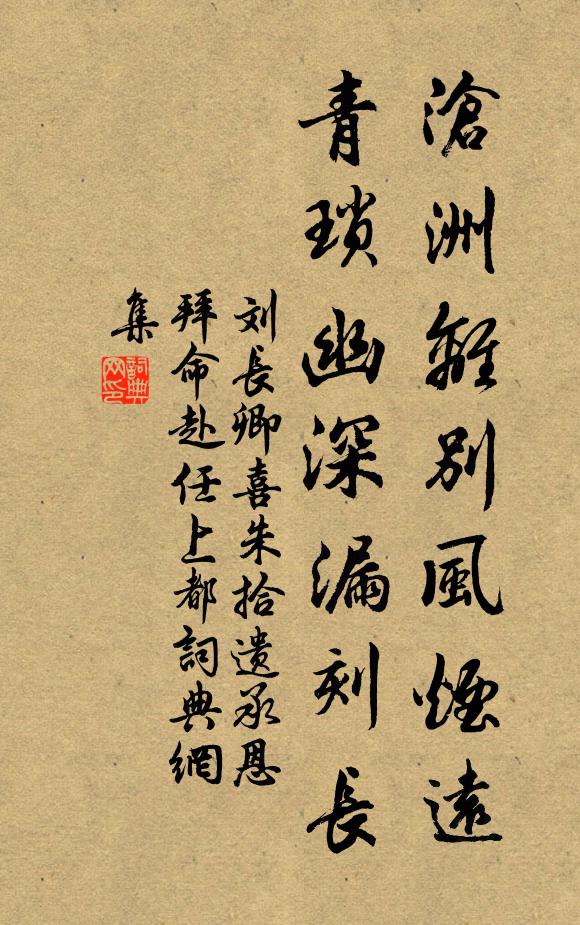 滄洲離別風煙遠
青瑣幽深漏刻長
刘長卿喜朱拾遗承恩
拜命赴任上都詞典網
集
詞典
网印